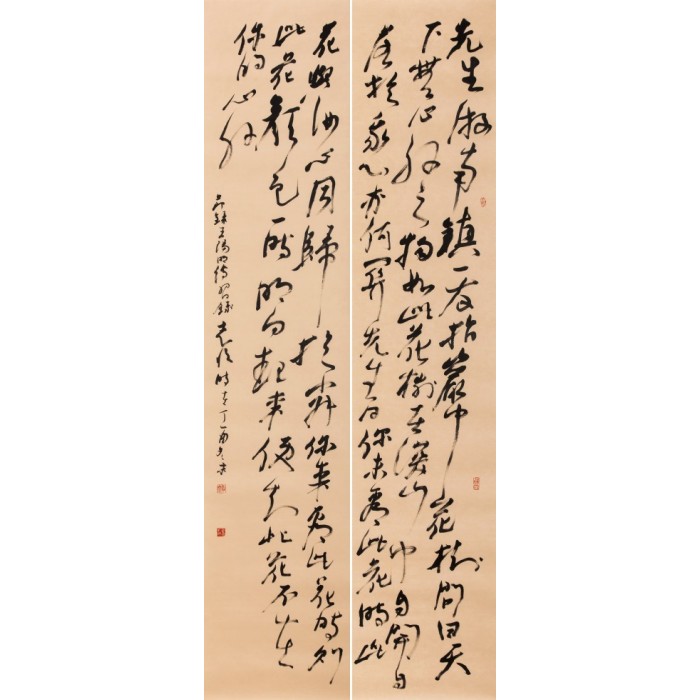 先生游南鎮一友指巖中花樹問曰天
下無心外之物如此花樹在深山中自開自
落於我心亦何關先生曰你未看此花時此
花與汝心同歸於寂你來看此花時則
此花顏色一時明白起來便知此花不在
你的心外
節錄王陽明傳習錄 時在丁酉冬